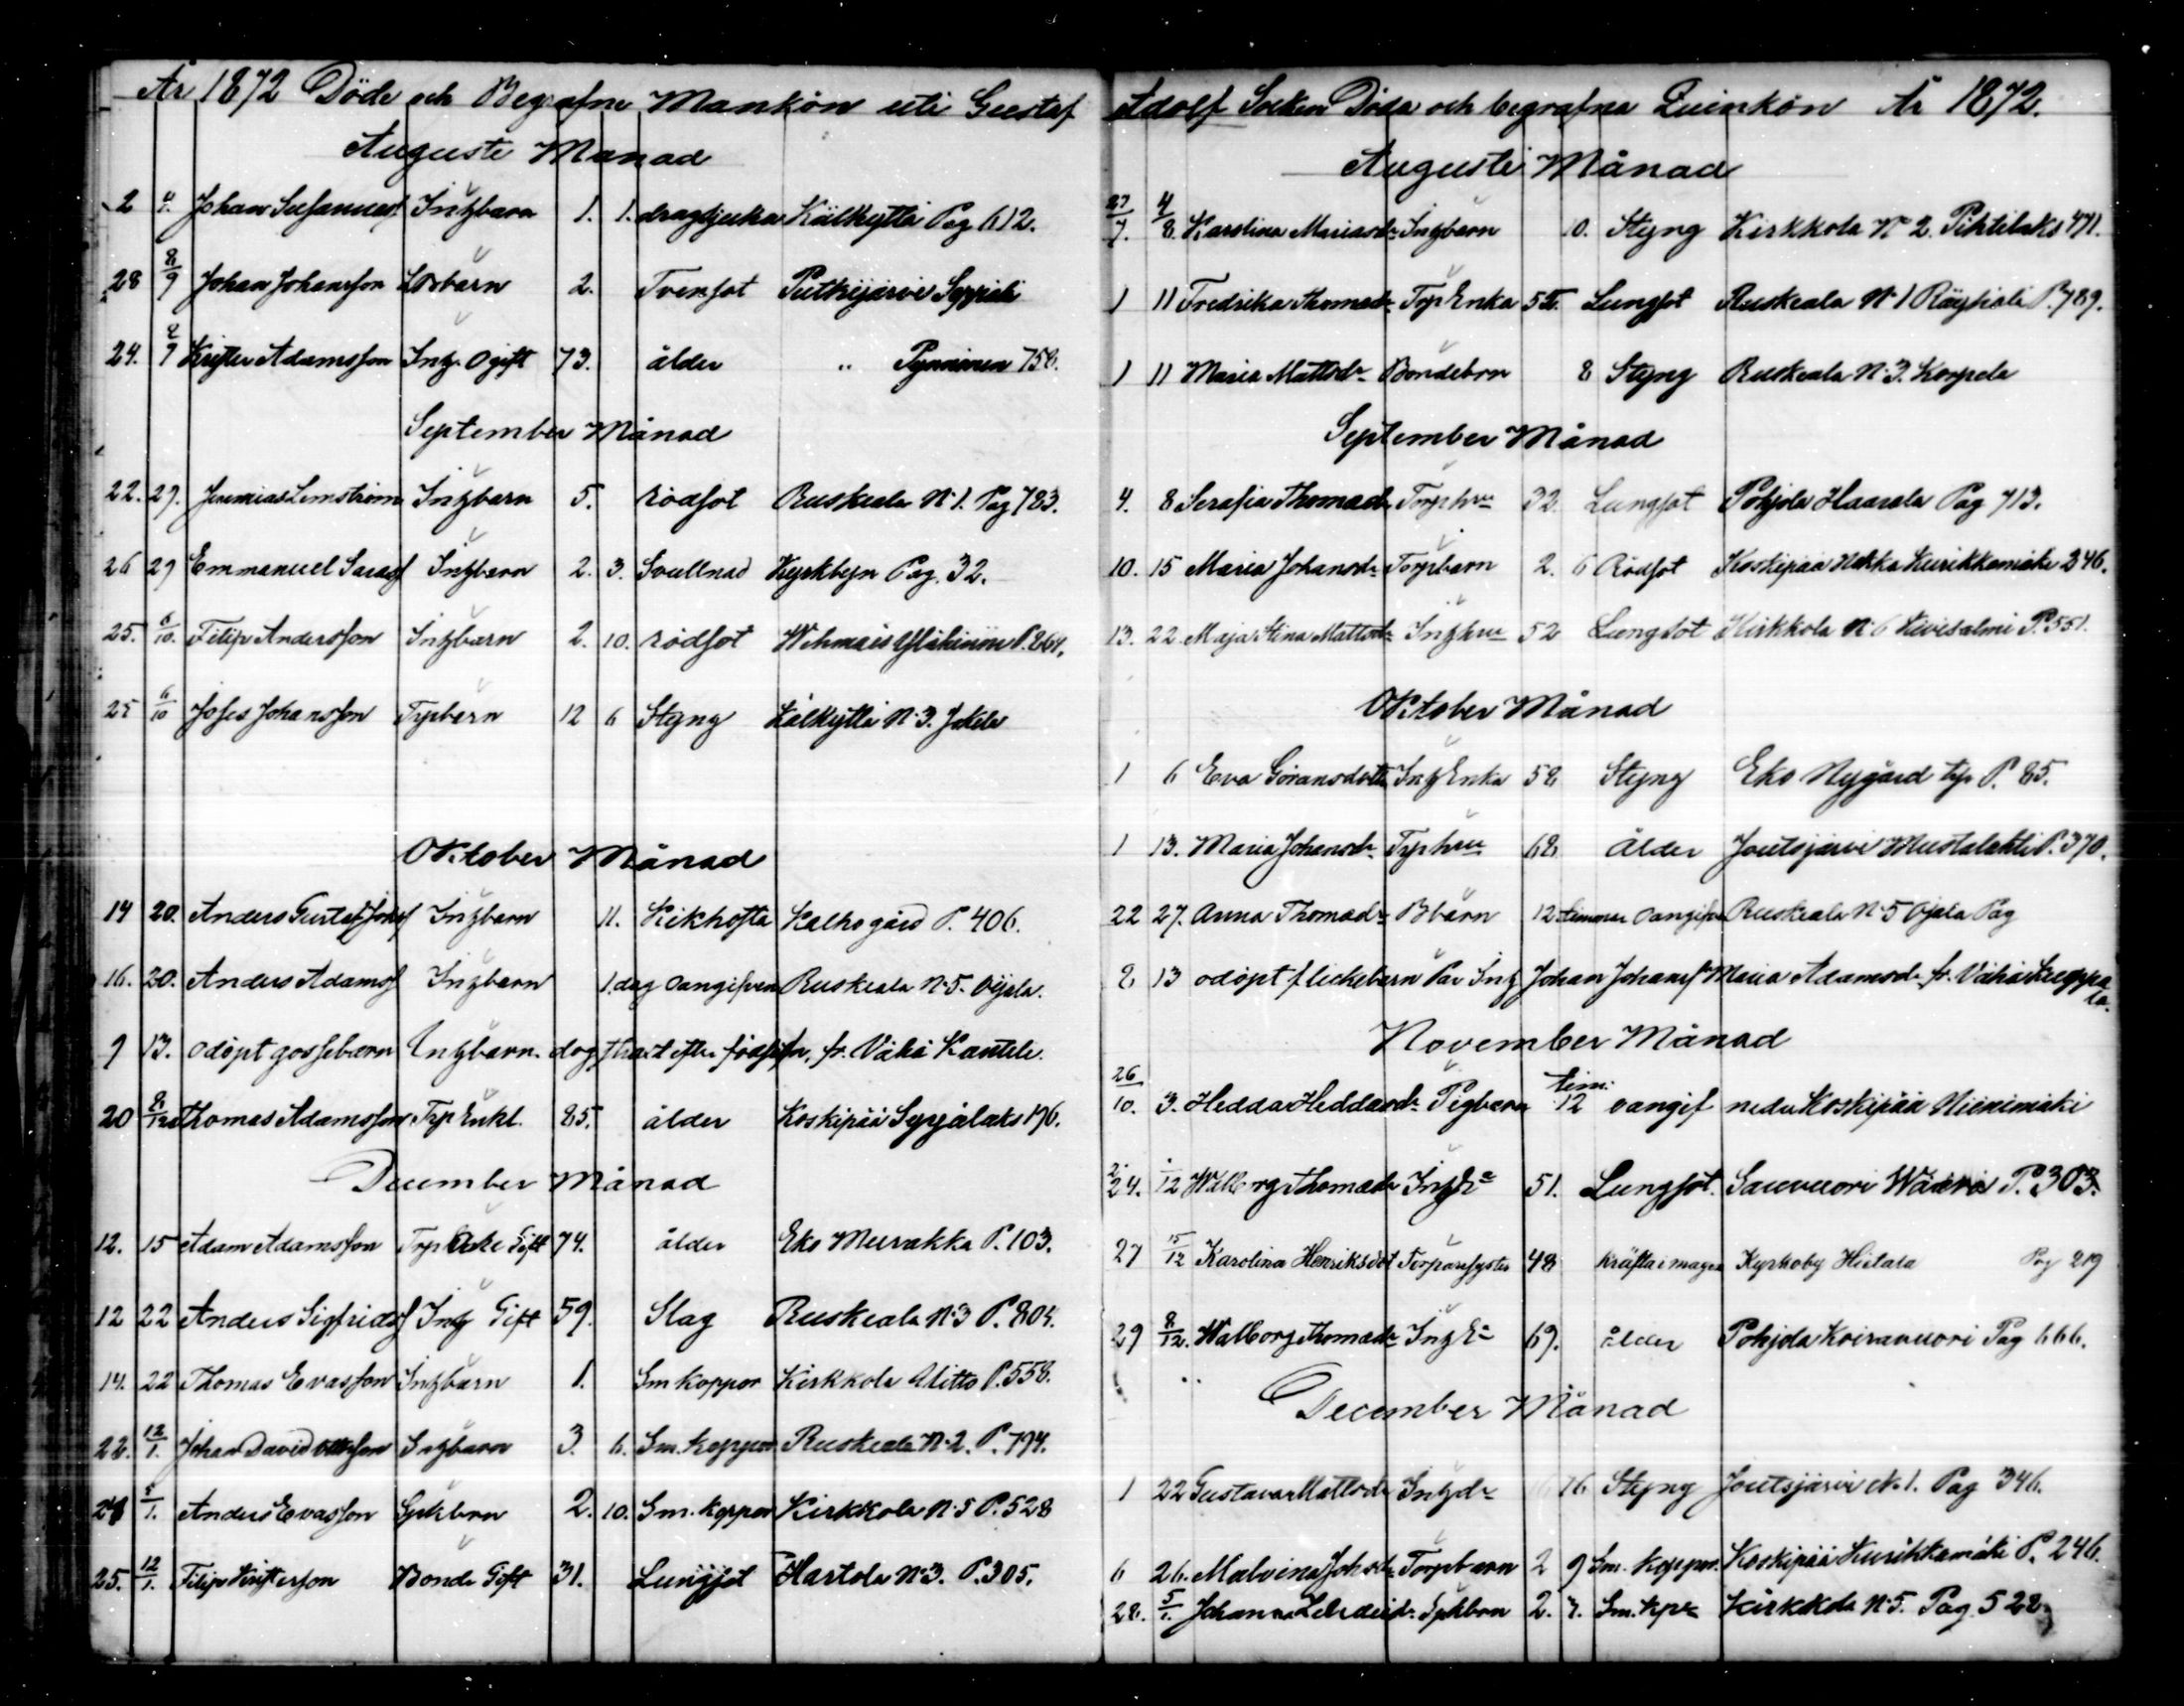 År 1872 Döde och Begrafne Mankön uti Gustaf
Augusti Månad
2 4/. Johan Inhbarn 1. 1. dragsjuka Kälkyttä Pag 612.
28 8/9 Johan Johansson Lösbarn 2. Tvensot Putkijärvi Seppälä
24. 8/9 Krister Adamsson Inh. Ogift 73. ålder " Pynninen 758.
September Månad
22. 29. Jeremias Lemström Inhbarn 5. rödsot Ruskeala N:1. Pag 783.
26 29 Emmanuel Sarasf Inhbarn 2. 3. Svullnad Kyrkbyn Pag. 32.
25. 6/10. Filip Andersson Inhbarn 2. 10. rödsot P. 864.
25 6/10 Josef Johansson Trpbarn 12 6 Styng Kälkyttä N:3. Jakela
Oktober Månad
14 20. Anders Gustaf Inhbarn 11. Kikhosta Kalho gård P. 406.
16. 20. Anders Adamsf Inhbarn 1. dag oangifven Ruskeala N:5. Ojala.
9 13. odöpt gossebarn Inhbarn. dog strax efter födseln, fr. Vähä Kantele.
20 8/12 Thomas Adamsson Trp Enkl. 85. ålder Koskipää Syrjälaks 196.
December Månad
12. 15 Adam Adamsson Trp Gift 74. ålder Eko Murakka P. 103.
12 22 Anders Sigfridsf Inh Gift 59. Slag Ruskeala N:3 P. 804.
14. 22 Thomas Evasson Inhbarn 1. Sm koppor Kirkkola Alitto P. 558.
22. 12/1. Johan David Inhbarn 3. 6. Sm. koppor Ruskeala N:2. P. 794.
24 5/1. Anders Evasson Spkbarn 2. 10. Sm. koppor Kirkkola N:5 P. 528
25. 12/1. Filip Kristersson Bonde Gift 31. Lungsot Hartola N:3. P. 305.
Adolf Socken Döda och begrafna Quinkön År 1872.
Augusti Månad
27/7. 4/8. Karolina Mariasdr Inhbarn 10. Styng Kirkkola N:o 2. Pihtilaks 471.
1 11 Fredrika Thomasdr Trp Enka 55. Lungsot Ruskeala N:1 P. 789.
1 11 Maria Mattsdr Bondebrn 8 Styng Ruskeala N:3. Korpela
September Månad
4. 8 Serafia Thomasdr Torphu 32. Lungsot Pohjola Haarala Pag 713.
10. 15 Maria Johansdr Torpbarn 2. 6 Rödsot Koskipää Kurikkamäki 246.
13. 22 Maja Stina Mattsdr Inhhu 52 Lungsot Kirkkola N:6 Kivisalmi P. 551.
Oktober Månad
1 6 Eva Göransdotter Inh Enka 58 Styng Eko Nygård trp P. 85.
1 13. Maria Johansdr Trphu 68 Ålder Joutsjärvi Mustalahti P. 370.
22 27. Anna Thomasdr Bbarn 12 timmar oangifven Ruskeala N:5 Ojala Pag
8 13 odöpt flickebarn Par Inh Johan Johansf Maria Adamsdr fr. Vähä Seppälä.
November Månad
26/10. 3. Hedda Heddasdr Pigbarn tim. 12 oangif nedu Koskipää Niinimäki
24. 2/12 Walborg Thomasdr Inh 51. Lungsot. Sauvuori P. 303.
27 15/12 Karolina Henriksdot Torparesyster 48 kräfta i magen Kyrkoby Hietala Pag 219
29 8/12. Walborg Thomasdr Inh E 69. ålder Pohjola Koiravuori Pag 666.
December Månad
1 22 Gustava Mattsdr Inhdr 16 Styng Joutsjärvi N:1. Pag 346.
6 26. Malvina Johdr Torpbarn 2 9 Sm. koppor. Koskipää Kurikkamäki P. 246.
28. 5/1. Johanna Spkbrn 2. 7. Sm. kpr Kirkkola N:5. Pag 528.